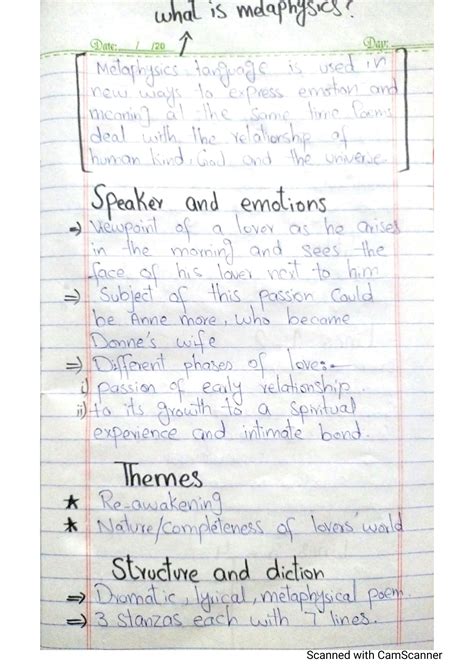 what is metaphysics?
Date: / /20 Day:
Metaphysics language is used in
new ways to express emotion and
meaning at the same time Poems
deal with the relationship of
human kind, God and the universe
Speaker and emotions
⇒ Viewpoint of a lover as he arises
in the morning and sees the
face of his lover next to him
⇒ Subject of this passion Could
be Anne more, who became
Donne's wife
⇒ Different phases of love:-
i) passion of early relationship
ii) to its growth to a Spiritual
experience and intimate bond.
Themes
★ Re-awakening
★ Nature/completeness of lovers' world
Structure and diction
⇒ Dramatic, lyrical, metaphysical poem.
⇒ 3 stanzas each with 7 lines.
Scanned with CamScanner